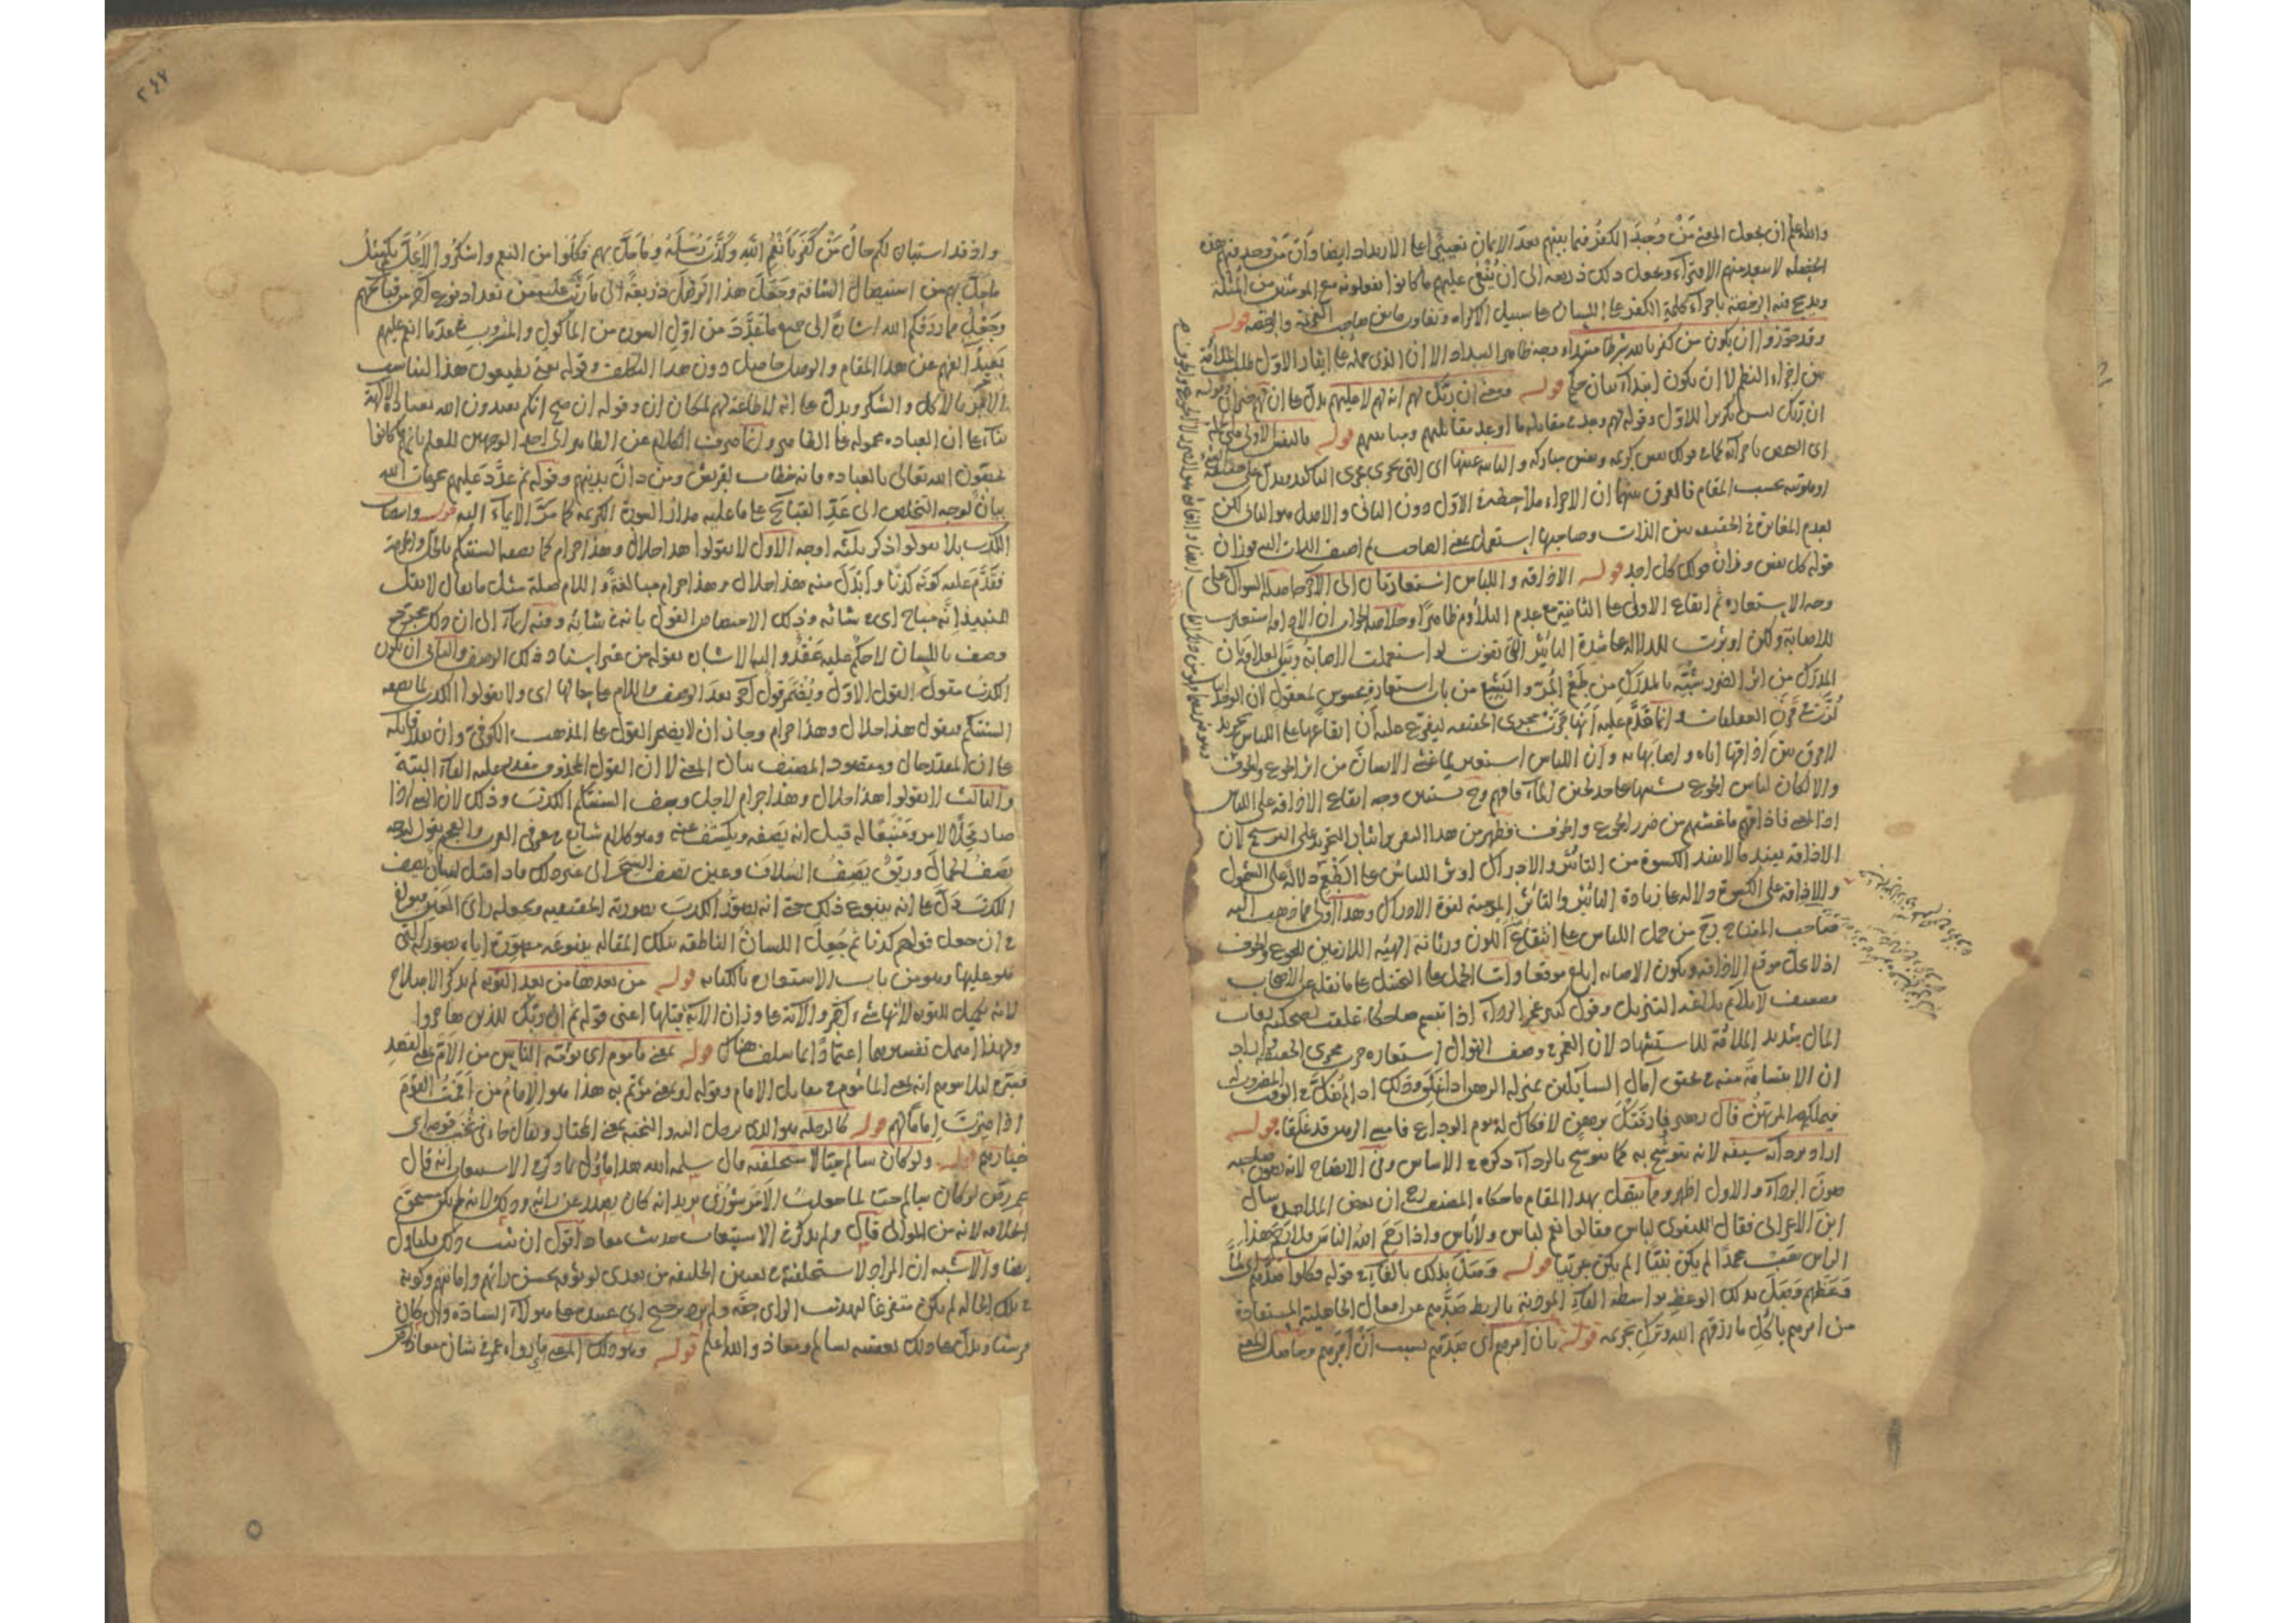 والله اعلم ان يجعل المعنى من وجد الكفر فيما بينهم بعد الايمان تعييرا على الارتداد ايضا وان من وجد فيهم هذه
الخصلة لا يبعد منهم الافتراء ويجعل ذلك ذريعة الى ان ينعى عليهم ما كانوا يفعلونه مع المؤمنين من المثلة
ويدمج فيه الرخصة باجراء كلمة الكفر على اللسان على سبيل الاكراه وتفاوت ما بين صاحب العزيمة والرخصة قوله
وقد جوزوا ان يكون من كفر بالله شرطا مبتدا وجه ظاهر السداد الا ان الذى حمله على ايثار الاول طلب الملائمة
بين اجزاء النظم لا ان يكون ابتداء بيان حكم قوله ومعنى ان ربك لهم انه لهم لا عليهم يدل على ان لهم خبر ان وقوله
ان ربك ليس تكريرا للاول وقوله لهم وجد فى مقابلة ما اوعد مقابليهم ومباينيهم قوله بالنفس الاولى
اى الشخص باجزائه كما فى قولك نفس كريمة ونفس مباركة والثانية عينها اى التى تجرى مجرى التاكيد ويدل على حقيقة الشىء
وهويته بحسب المقام فالفرق بينهما ان الاجزاء ملاحظة فى الاول دون الثانى والاصل هو الثانى لكن
لعدم المغايرة فى الحقيقة بين الذات وصاحبها استعمل بمعنى الصاحب ثم اضيف الذات اليه فوزان
قوله كل نفس وزان قولك كل احد قوله الاذاقة واللباس استعارتان الى الآخر حاصله السؤال على
وجه الاستعارة ثم ايقاع الاولى على الثانية مع عدم التلاؤم ظاهرا وخلاصة الجواب ان الاذاقة استعيرت
للاصابة ولكن اوثرت للدلالة على شدة التاثير التى تفوت لو استعملت الاصابة وبين العلاقة بان
المدرك من اثر الضرر شبه بالمدرك من طعم المر والبشع من باب استعارة محسوس لمعقول لان الوجدانيات
لزت فى قرن العقليات وانما قدم عليه انها جرت مجرى الحقيقة ليفرع عليه ان ايقاعها على اللباس تجريد
لا فرق بين اذاقها اياه واصابها به وان اللباس استعير لما غشى الانسان من اثر الجوع والخوف
والا لكان لباس الجوع مشبها على حد لجين الماء فافهم وح يستبين وجه ايقاع الاذاقة على اللباس
اذ المعنى فاذاقهم ما غشيهم من ضرر الجوع والخوف فظهر من هذا التقرير ايثار التجريد على الترشيح لان
الاذاقة يفيد ما لا يفيد الكسوة من التاثير والادراك اوثر اللباس على الطعم دلالة على الشمول
والاذاقة على الكسوة دلالة على زيادة التاثير والتاثر الموجبة لقوة الادراك وهذا اولى مما ذهب اليه
صاحب المفتاح رح من حمل اللباس على انتقاع اللون ورثاثة الهيئة اللازمين للجوع والخوف
اذ لا يحل موقع الاذاقة ويكون الاصابة ابلغ موقعا واما الحمل على التخييل على ما نقله عن الاصحاب
فضعيف لا يلائم بلاغة التنزيل وقول كثير غمر الرداء اذا تبسم ضاحكا غلقت لضحكته رقاب
المال شديد الملائمة للاستشهاد لان الغمر فى وصف النوال استعارة جرت مجرى الحقيقة واراد
ان الابتسامة منه فى عتق آمال السائلين بمنزلة الرهن اذا غلق وذلك اذا لم يفك فى الوقت
فيملكه المرتهن قال زهير فارقتك برهن لا فكاك له يوم الوداع فامسى الرهن قد غلقا قوله
اراد بردائه سيفه لانه يتوشح به كما يتوشح بالرداء ذكره فى الاساس وفى الايضاح لانه يصون صاحبه
صون الرداء والاول اظهر ومما يتصل بهذا المقام ما حكاه المصنف رح ان بعض الملاحدة سال
ابن الاعرابى فقال للتقوى لباس فقالوا نعم لباس ولا باس واذا رحم الله الناس فلا رحم هذا
الراس هب محمدا لم يكن نبيا الم يكن عربيا قوله وصل بذلك بالفاء فى قوله فكلوا صدهم اى لما
وعظهم وصل بذلك الوعظ بواسطة الفاء المؤذنة بالربط صدهم عن افعال الجاهلية المستفادة
من امرهم باكل ما رزقهم الله وترك تحريمه قوله بان امرهم اى صدهم بسبب ان امرهم وحاصل المعنى
٢٤٧
واذ قد استبان لكم حال من كفر بانعم الله وكذب رسله وما حل بهم فكلوا من النعم واشكروا لا يحل بكم مثل
ما حل بهم من استيصال الشافة وجعل هذا التوصل ذريعة الى ما رتب عليه من تعداد نوع آخر من قبائحهم
وجعل مما رزقكم الله اشارة الى جميع ما تعدد من اول السورة من المأكول والمشروب مما انعم عليهم
بعيد الفهم عن هذا المقام والوصل حاصل دون هذا التكلف وقوله يعنى تطيعون هذا ليناسب
الامر بالاكل والشكر ويدل على انه لا طاعة لهم لمكان ان وقوله ان صح انكم تعبدون الله بعبادة الآلهة
بناء على ان العبادة محمولة على الظاهر وانما صرف الكلام عن الظاهر الى احد الوجهين للعلم بانهم ما كانوا
يخصون الله تعالى بالعبادة فانه خطاب لقريش ومن دان بدينهم وقوله ثم عدد عليهم محرمات الله
بيان لوجه التخلص الى عد القبائح على ما عليه مدار السورة الكريمة كما مر الايماء اليه قوله وانتصاب
الكذب بلا تقولوا ذكر ثلثة اوجه الاول لا تقولوا هذا حلال وهذا حرام لما تصفه السنتكم بالحل والحرمة
فقدم عليه كونه كذبا وابدل منه هذا حلال وهذا حرام مبالغة واللام صلة مثل ما يقال لا تقل
للنبيذ انه مباح اى فى شانه وذلك الاختصاص القول بانه فى شانه وفيه ايماء الى ان ذلك مجرد
وصف باللسان لا حكم عليه عقد واليه الاشارة بقوله من غير استناد ذلك الوصف والثانى ان يكون
الكذب مقول القول الاول ويضمر قول آخر بعد الوصف واللام على حالها اى ولا تقولوا الكذب لما تصفه
السنتكم فتقول هذا حلال وهذا حرام وجاز ان لا يضمر القول على المذهب الكوفى
على ان المقدر حال ومقصود المصنف بيان المعنى لا ان القول المحذوف مقدر عليه الفاء البتة
والثالث لا تقولوا هذا حلال وهذا حرام لاجل وصف السنتكم الكذب وذلك لان الشىء اذا
صار مجلا لامر ومنبعا له قيل انه يصفه ويكشف عنه وهو كلام شائع فى عرفى العرب والعجم يقول له وجه
يصف الجمال وريق يصف السلاف وعين تصف السحر الى غير ذلك فاذا قيل لسان يصف
الكذب دل على انه ينبوع ذلك حتى انه يصور الكذب بصورته الحقيقية
فى ان جعل قولهم كذبا ثم جعل اللسان الناطقة بتلك المقالة ينبوعه مصورة اياه بصورته التى
هو عليها وهو من باب الاستعارة بالكناية قوله من بعدها من بعد التوبة لم يذكر الاصلاح
لانه تكميل للتوبة لانها شىء آخر والآية على وزان الآية قبلها اعنى قوله ثم ان ربك للذين هاجروا
ولهذا اهمل تفسيرها اعتمادا لما سلف هناك قوله بمعنى مأموم اى يؤمه الناس من الام بمعنى القصد
فسره لئلا يتوهم انه بمعنى المأموم فى مقابل الامام وقوله او بمعنى مؤتم به هذا هو الامام من اممت القوم
اذا صرت امامهم قوله كالرحلة هو الذى يرحل اليه والنخبة بمعنى المختار ويقال جاءنى نخب قومه اى
خيارهم قوله ولو كان سالم حيا لاستخلفته قال سلمه الله هذا مأول لما ذكره فى الاستيعاب انه قال
عمر رض لو كان سالم حيا لما جعلت الامر شورى يريد انه كان يصدر عن رايه وذلك لانه لم يكن مستحق
الخلافة لانه من الموالى قال ولم يذكر فى الاستيعاب حديث معاذ اقول ان ثبت ذلك فليأول
ايضا والاشبه ان المراد لاستخلفته فى تعيين الخليفة من بعدى لوثوقه بحسن رايهم وامانتهم وكونه
فى تلك الحالة لم يكن متفرغا لهذيب الراى حقه ولم يترجح اى عنده على هؤلاء السادة وان كان
مرشدا ويدل على ذلك تعقيبه بسالم ومعاذ والله اعلم قوله وهو ذلك المعنى ما رواه عمر فى شان معاذ